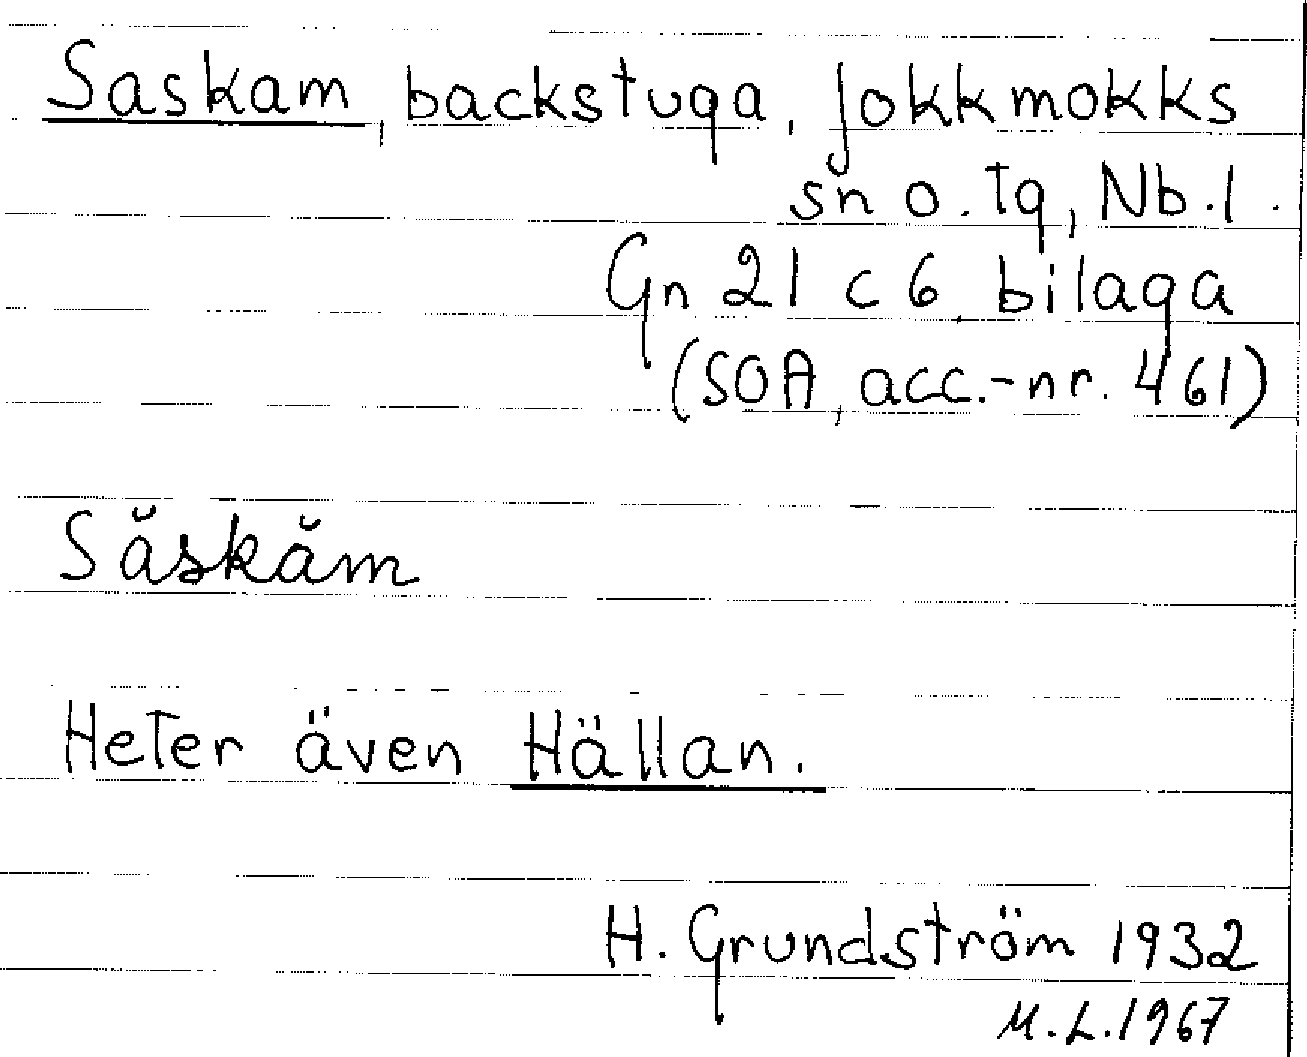 Saskam, backstuga, Jokkmokks
sn o. tg, Nb.l.
Gn 21 c 6, bilaga
(SOA, acc.-nr. 461)
Săskăm
Heter även Hällan.
H. Grundström 1932
M.L.1967